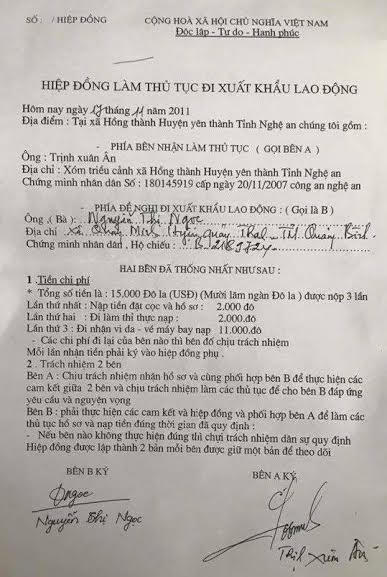 SỐ : / HIỆP ĐỒNG CỘNG HOÀ XÃ HỘI CHỦ NGHĨA VIỆT NAM
Độc lập - Tự do - Hạnh phúc
HIỆP ĐỒNG LÀM THỦ TỤC ĐI XUẤT KHẨU LAO ĐỘNG
Hôm nay ngày tháng 11 năm 2011
Địa điểm : Tại xã Hồng thành Huyện yên thành Tỉnh Nghệ an chúng tôi gồm :
- PHÍA BÊN NHẬN LÀM THỦ TỤC ( GỌI BÊN A )
Ông : Trịnh xuân Ân
Địa chỉ : Xóm triều cảnh xã Hồng thành Huyện yên thành Tỉnh Nghệ an
Chứng minh nhân dân Số : 180145919 cấp ngày 20/11/2007 công an nghệ an
- PHÍA ĐỀ NGHỊ ĐI XUẤT KHẨU LAO ĐỘNG : ( Gọi là B )
Ông .( Bà ) : Nguyễn Thị Ngọc
Địa chỉ Xã Quảng Minh Huyện Quảng Trạch, Quảng Bình
Chứng minh nhân dân , Hộ chiếu :
HAI BÊN ĐÃ THỐNG NHẤT NHƯ SAU :
1 .Tiền chi phí
* Tổng số tiền là : 15.000 Đô la (USĐ) (Mười lăm ngàn Đô la ) được nộp 3 lần
Lần thứ nhất : Nạp tiền đặt cọc và hồ sơ : 2.000 đô
Lần thứ hai : Đi làm thỉ thực nạp : 2.000 đô
Lần thứ 3 : Đi nhận vi da - vé máy bay nạp 11.000.đô
- Các chi phí đi lại của bên nào thì bên đó chịu trách nhiệm
Mỗi lần nhận tiền phải ký vào hiệp đồng phụ .
2 . Trách nhiệm 2 bên
Bên A : Chịu trách nhiệm nhận hồ sơ và cùng phối hợp bên B để thực hiện các
cam kết giữa 2 bên và chịu trách nhiệm làm các thủ tục để cho bên B đáp ứng
yêu cầu và nguyện vọng
Bên B : phải thực hiện các cam kết và hiệp đồng và phối hợp bên A để làm các
thủ tục hồ sơ và nạp tiền đúng thời gian đã quy định :
- Nếu bên nào không thực hiện đúng thì chựi trách nhiệm dân sự quy định
Hiệp đồng được lập thành 2 bản mỗi bên được giữ một bản để theo dõi
BÊN B KÝ BÊN A KÝ
Nguyễn Thị Ngọc
Trịnh Xuân Ân